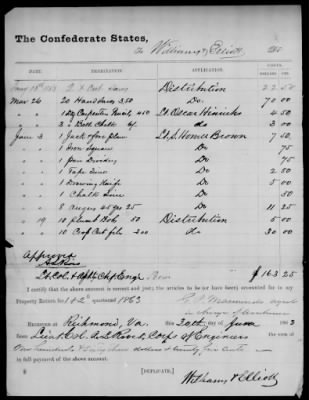 The Confederate States,
To Williams & Elliott Dr.
DESIGNATION. APPLICATION. DOLLARS CTS
1863 Distribution 22 50
Mar 26 20 Handsaws 3,50 Do. 70 00
1 Dz Carpenter Pencils 4 50
3 " Chalk Do 3 00
June 3 1 Jack & fore plane Lt. S. Homer Brown 7 50
" " 1 Iron Square Do 75
" " 1 pr Dividers Do 75
" " 1 Tape Line Do 2 50
" " 1 Drawing Knife Do 5 00
" " 1 Chalk Line Do 50
" " 8 augers 45 qrs 25 Do 11 25
" 19 10 Plumb Bob 50 Distribution 5 00
" " 10 Crop Cut file 300 Do 30 00
Approved
Lt. Col. & Chf. Engr. $163 25
I certify that the above account is correct and just; the articles to be (or have been) accounted for in my
Property Return for 1 & 2d quarters 1863
RECEIVED at Richmond, Va. this 20th day of June 1863
from Lieut. Col. A. L. Rives, Corps of Engineers
One hundred & sixty three dollars & twenty five cents
in full payment of the above account.
[DUPLICATE.] Williams & Elliott